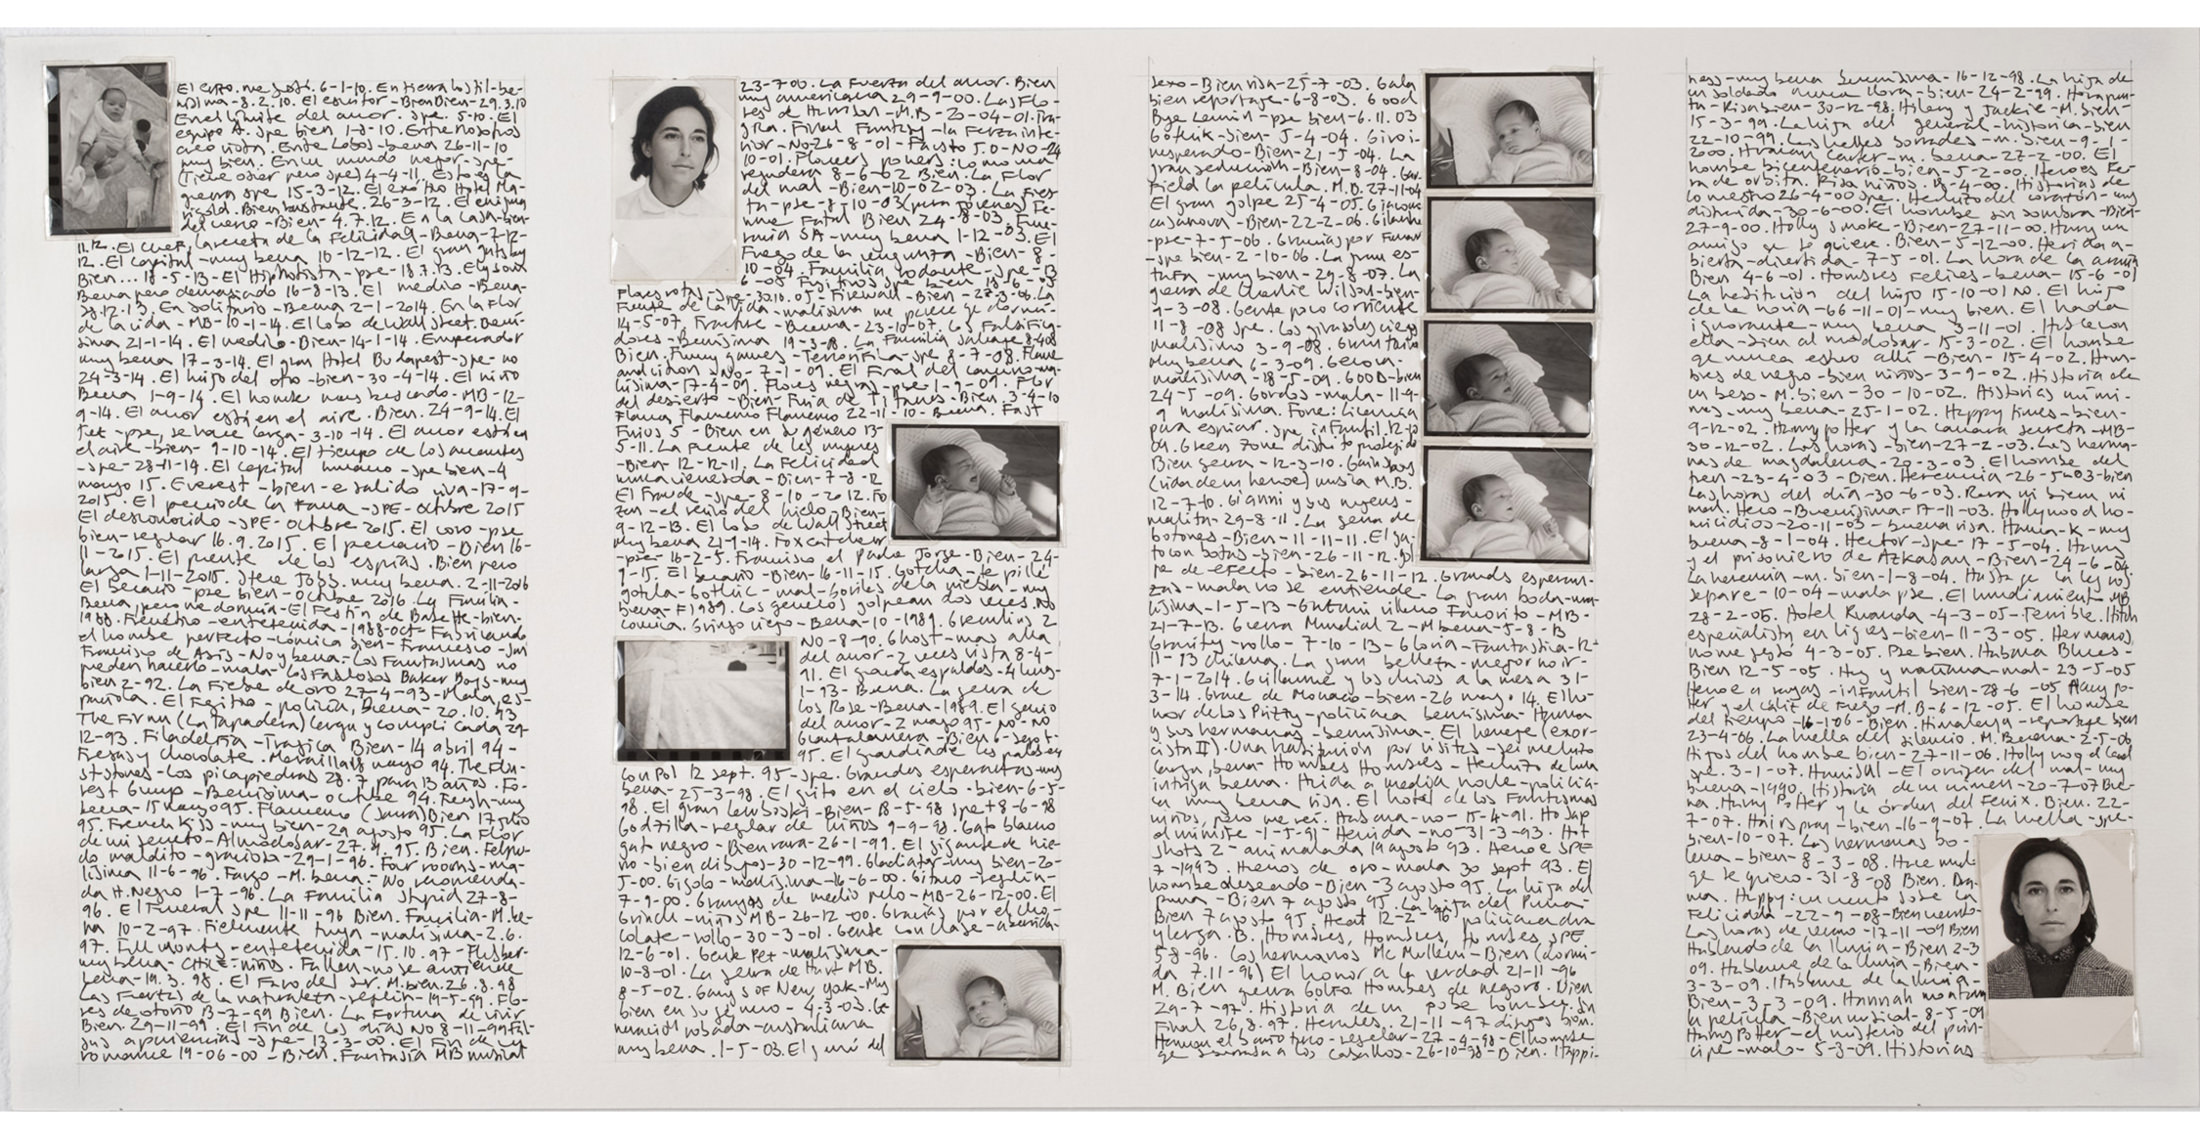 El erizo. me gustó. 6-1-10. En tierra hostil-be-
nísima-8.2.10. El escritor-Bien Bien-29.3.10
En el límite del amor. Spe. 5-10. El
equipo A. Spe bien 1-8-10. Entre nosotros
creo vista. Entre Lobos-buena 26-11-10
muy bien. En un mundo mejor-spe-
(tiene oscar pero spe) 4-4-11. Esto es la
guerra spe 15-3-12. El exótico Hotel Ma-
rigold. Bien bastante. 26-3-12. El enigma
del cuervo-Bien-4.7.12. En la casa-bien-
11.12. El chef, la receta de la Felicidad-Buena-7-12-
12. El capital-muy buena 10-12-12. El gran Gatsby
Bien... 18-5-13-El Hipnotista-pse-18.7.13. Elysium
Buena pero demasiado 16-8-13. El médico-Buena-
28.12.13. En solitario-Buena 2-1-2014. En la flor
de la vida-MB-10-1-14. El lobo de Wall Street. Buení-
sima 21-1-14. El médico-Bien-14-1-14. Emperador
muy buena 17-3-14. El gran Hotel Budapest-spe-no
24-3-14. El hijo del otro-bien-30-4-14. El niño
Buena 1-9-14. El hombre más buscado-MB-12-
9-14. El amor está en el aire. Bien. 24-9-14. El
Jet-pse, se hace larga-3-10-14. El amor está en
el aire-bien-9-10-14. El tiempo de los amantes
-spe-28-11-14. El capital humano-spe bien-4
mayo 15. Everest-bien-e salido viva-17-9-
2015. El precio de la Fama-SPE-octubre 2015
El desconocido-SPE-octubre 2015. El coro-pse
bien-regular 16.9.2015. El becario-Bien 16-
11-2015. El puente de los espías. Bien pero
larga 1-11-2015. Steve Jobs. muy buena. 2-11-2016
El Becario-pse bien-octubre 2016. La Familia-
Buena, pero me dormía-El Festín de Babette-bien-
1988. Frenético-entretenida-1988-oct-Fabricando
el hombre perfecto-cómica bien-Francesco-San
Francisco de Asís-No y buena-Los Fantasmas no
pueden hacerlo-mala-Los Fabulosos Baker Boys-muy
bien 2-92. La Fiebre de oro 27-4-93-Mala, es-
pañola. El Fugitivo-policía, Buena-20.10.93
The Firm (La tapadera) larga y complicada 29-
12-93. Filadelfia-Trágica Bien-14 abril 94-
Fresas y chocolate. Maravilla 18 mayo 94. The Flin-
stones-Los picapiedras 28.7 para 13 años. Fo-
rest Gump-Buenísima-octubre 94. French-muy
buena-15 mayo 95. Flamenco (Saura) Bien 17 julio
95. French Kiss-muy bien-29 agosto 95. La Flor
de mi secreto-Almodóbar-27.9.95. Bien. Felpu-
do maldito-graciosa-29-1-96. Four rooms-ma-
lísima 11-6-96. Fargo-M. buena-No recomenda-
da H. Negro 1-7-96. La Familia Stupid 27-8-
96. El Funeral Spe 11-11-96 Bien. Familia-M. be-
na 10-2-97. Fielmente tuya-malísima-2.6.
97. Full monty-entretenida-15.10.97-Flubber-
muy buena-chiste-niños. Fallen-no se entiende
buena-19.3.98. El Faro del Sur. M. bien. 26.8.98
Las Fuerzas de la naturaleza-reglín-19-5-99. Flo-
res de otoño 13-7-99 Bien. La Fortuna de vivir
Bien. 29-11-99. El Fin de los días No 8-11-99 Fal-
sas apariencias-spe-13-3-00. El Fin de un
romance 19-06-00-Bien. Fantasía MB musical
23-7-00. La Fuerza del amor. Bien
muy americana 29-9-00. Las Flo-
res de Harrison-M.B-23-04-01. Ma-
gra. Final Fantasy-la Fuerza inte-
rior-No 26-8-01-Fausto 5.0-No-24
10-01. Flowers powers: como una
regadera 8-6-02 Bien. La Flor
del mal-Bien-10-02-03. La Fies-
ta-pse-8-10-03 (para jóvenes) Fe-
mme Fatal Bien 24-8-03. Fue-
rmia SA-muy buena 1-12-03. El
Fuego de la venganza-Bien-8-
10-04. Familia rodante-spe-13
6-05. Fugitivos spe bien 18-6-05
Flores rotas-spe-30.10.05-Firewall-Bien-27-3-06. La
Fuente de la Vida-malísima me parece qe dormí-
14-5-07. Fracture-Buena-23-10-07. Los Falsifica-
dores-Buenísima 19-3-08. La Familia Salvaje 8-4-08
Bien. Funny games-Terrorífila-spe 8-7-08. Flame
and citron No-7-1-09. El Final del camino-ma-
lísima-17-4-09. Flores negras-pse-1-9-09. Flor
del desierto-Bien-Furia de Titanes-Bien. 3-4-10
Flama Flamenco Flamenco 22-11-10-Buena. Fast
Furius 5-Bien en su género 13-
5-11. La Fuente de las mujeres
-Bien-12-12-11. La Felicidad
nunca viene sola-Bien-7-8-12
El Fraude-spe-8-10-2012. Fo
zen-el reino del hielo-Bien-
9-12-13. El lobo de Wall Street
muy buena 21-1-14. Foxcatcher
-pse-16-2-5. Francisco el Padre Jorge-Bien-24-
9-15. El becario-Bien-16-11-15. Gotcha-te pillé
gotita-Gothic-mal-Gorilas de la niebla-muy
buena-F1989. Los gemelos golpean dos veces. no
cómica. Gringo viejo-Buena-10-1989. Gremlins 2
No-8-90. Ghost-más allá
del amor-2 veces vista 8-4-
91. El guarda espaldas-4 luns-
1-93-Buena. La guerra de
los Rose-Buena-1989. El genio
del amor-2 mayo 95-no-no
Guantanamera-Bien 6-sept-
95. El guardián de las palabras
con Pol 12 sept. 95-spe. Grandes esperanzas-muy
buena-25-3-98. El grito en el cielo-bien-6-5-
98. El gran Lewboski-Bien-18-5-98 spe+8-6-98
Godzilla-reglar de niños 9-9-98. Gato blanco
gato negro-Bien rara-26-1-99. El gigante de hie-
rro-bien dibujos-30-12-99. Gladiator-muy bien-20-
5-00. Gigolo-malísima-16-6-00. Gitano-reglín-
7-9-00. Granujas de medio pelo-MB-26-12-00. El
Grinch-niños MB-26-12-00. Gracias por el cho-
colate-rollo-30-3-01. Gente con clase-aburrida-
12-6-01. Gente Pet-malísima-
10-8-01. La guerra de Hart MB.
8-5-02. Gangs of New york-Muy
bien en su género-4-3-03. Ge
neración robada-australiana
muy buena. 1-5-03. El gurú del
sexo-Bien risa-25-7-03. Gala
bien reportaje-6-8-03. Good
Bye Lenin-pse bien-6.11.03
Gothik-bien-5-4-04. Giro i-
nesperado-Bien-21-5-04. La
gran seducción-Bien-8-04. Gar
field la película. M.B. 27-11-04
El gran golpe 25-4-05. Giacomo
casanova-Bien-22-2-06. Gilanne
-pse-7-5-06. Gracias por fumar
-spe bien-2-10-06. La gran es-
tafa-muy bien-29-8-07. La
guerra de Charlie Wilson-bien-
1-3-08. Gente poco corriente
11-8-08 spe. Los girasoles ciegos
malísimo 3-9-08. Gran torino
Muy buena 6-3-09. Genova-
malísima-18-5-09. GOOD-bien
24-5-09. Gordos-mala-11-9-
9 malísima. Force: Licencia
para espiar. Spe infantil. 12-10
09. Green Zone distrito protegido
Bien guerra-12-3-10. Gainsbourg
(vida de un héroe) música M.B.
12-7-10. Gianni y sus mujeres-
malita-29-8-11. La guerra de
botones-Bien-11-11-11. El ga-
to con botas-bien-26-11-12. Gol
pe de efecto-bien-26-11-12. Grandes esperan-
zas-mala no se entiende-La gran boda-ma-
lísima-1-5-13-Gru mi villano favorito-MB-
21-7-13. Guerra Mundial 2-M buena-5-8-13
Gravity-rollo-7-10-13-Gloria-Fantástica-12-
11-13 chilena. La gran belleza-mejor no ir-
7-1-2014. Guillaume y los chicos a la mesa 31-
3-14. Grace de Mónaco-bien-26 mayo 14. El ho-
nor de los Prizzy-policíaca buenísima-Hanna
y sus hermanas-buenísima. El hereje (exor-
cista II). Una habitación por vistas-Sei meluto
larga, buena-Hombres Hombres-Hechizo de luna
intriga buena. Huida a media noche-policía-
ca muy buena risa. El hotel de los Fantasmas
niños, pero me reí. Habana-no-15-4-91. Ho sap
el ministre-1-5-91-Herida-no-31-3-93. Hot
shots 2-animalada 19 agosto 93. Héroe SPE
7-1993. Henos de oro-mala 30 sept 93. El
hombre deseado-Bien-3 agosto 95. La hija del
puma-Bien 7 agosto 95. La hija del Puma-
Bien 7 agosto 95. Heat 12-2-96 policíaca dra
y larga. B. Hombres, Hombres, Hombres SPE
5-8-96. Los hermanos Mc Mullen-Bien (dormi-
da 7.11-96) El honor a la verdad 21-11-96
M. Bien guerra Golfo Hombes de negoro. Bien
29-7-97. Historia de un pobe hombre. Sin
Final 26.8.97. Hercules. 21-11-97 dibujos bien.
Haman el baño turco-regelar-27-4-98-El hombre
qe susurraba a los caballos-26-10-98-Bien. Happi-
ness-muy buena buenísima-16-12-98. La hija de
un soldado nunca llora-bien-24-2-99. Hora pun-
ta-Risa bien-30-12-98. Hilary y Jackie-M. bien-
15-3-99. La hija del general-histórica-bien
22-10-99. Las huellas borradas-m. bien-9-1-
2000. Huracán Carter-m. buena-27-2-00. El
hombre bicentenario-bien-5-2-00. Héroes Fue-
ra de órbita. Risa niños. 18-4-00. Historias de
lo nuestro 26-4-00 spe. Hechizo del corazón-muy
distraida-30-6-00. El hombre sin sombra-Bien-
27-9-00. Holly Smoke-Bien-27-11-00. Harry un
amigo qe te quiere. Bien-5-12-00. Herida a-
bierta-divertida-7-5-01. La hora de la araña
Bien 4-6-01. Hombres Felices-buena-15-6-01
La habitación del hijo 15-10-01 no. El hijo
de la novia-66-11-01-muy bien. El hada
ignorante-muy buena 3-11-01. Hable con
ella-bien al modobar-15-3-02. El hombre
qe nunca estuvo allí-Bien-15-4-02. Hom-
bres de negro-bien niños-3-9-02. Historia de
un beso-M. bien-30-10-02. Historias míni-
mas-muy buena-25-1-02. Happy times-bien-
9-12-02. Harry potter y la cámara secreta-MB-
30-12-02. Las horas-bien-27-2-03. Las herma-
nas de magdalena-20-3-03. El hombre del
tren-23-4-03-Bien. Herencia-26-5-03-bien
Las horas del día-30-6-03. Rara ni bien ni
mal. Hero-Buenísima-17-11-03. Hollywood ho-
micidios-20-11-03-buena risa. Hama-k-muy
buena-8-1-04. Hector-spe-17-5-04. Harry
y el prisionero de Azkaban-Bien-24-6-04.
La herencia-m. bien-1-8-04. Hasta qe la ley nos
separe-10-04-mala pse. El hundimiento-MB
28-2-05. Hotel Ruanda-4-3-05-Terrible. Hitch
especialista en ligues-bien-11-3-05. Hermanos,
no me gustó 4-3-05. Pse bien. Habana Blues-
Bien 12-5-05. Hoy y mañana-mal-23-5-05
Heroe a rayas-infantil bien-28-6-05 Harry po-
tter y el cáliz de Fuego-M.B-6-12-05. El hombre
del tiempo-16-1-06-Bien. Himalaya-reportaje bien
23-4-06. La huella del silencio. M. Buena-2-5-06
Hijos del hombe bien-27-11-06. Hollywood land
spe. 3-1-07. Hannibal-El origen del mal-muy
buena-1990. Historia de un crimen-20-7-07 Bue-
na. Harry Potter y la órden del Fenix. Bien. 22-
7-07. Hairspray-bien-16-9-07. La huella-spe-
bien-10-07. Las hermanas bo-
lena-bien-8-3-08. Hace mucho
qe te quiero-31-8-08 Bien. Dra-
ma. Happy: un cuento sobre la
Felicidad-22-9-08-Bien cuento
Las horas de verano-17-11-09 Bien
Hablando de la lluvia-Bien 2-3
09. Háblame de la lluvia-Bien-
3-3-09. Háblame de la lluvia-
Bien-3-3-09. Hannah montana
la película-Bien musical-8-5-09
Harry Potter-el misterio del prín-
cipe-malo-5-3-09. Historias